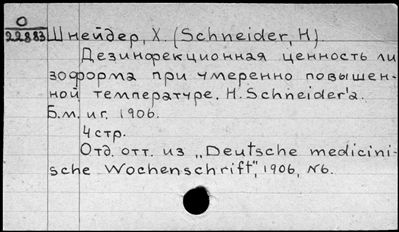 О
22883
Шнейдер, Х. (Schneider, H).
Дезинфекционная ценность ли
зоформа при умеренно повышен-
ной температуре. H. Schneider'а.
Б.м. и г. 1906.
4 стр.
Отд. отт. из „Deutsche medicini-
sche Wochenschrift", 1906, №6.